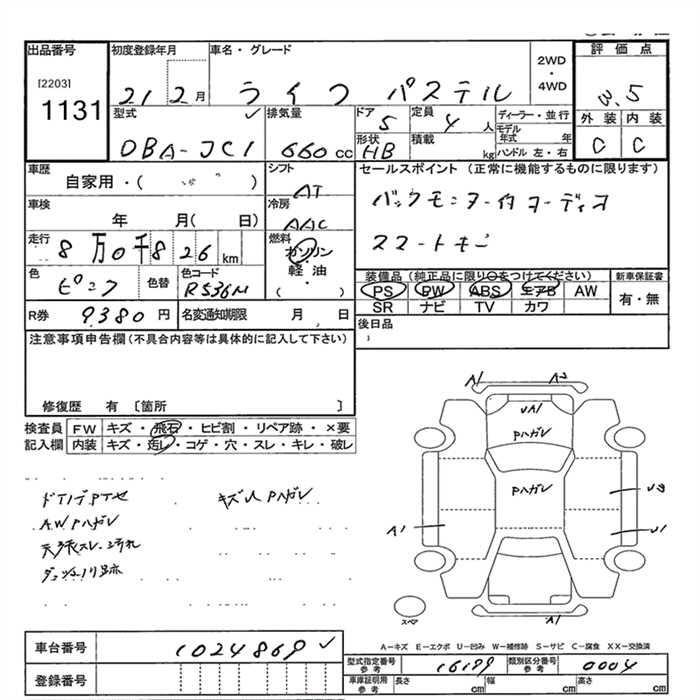 出品番号 初度登録年月 車名・グレード 2WD・4WD 評価点
[2203] 1131
21 2月 ライフ パステル 3.5
型式 排気量 ドア 定員 ディーラー・並行 外装 内装
DBA-JC1 660cc 5 4人 モデル年式 年 C C
形状 積載 ハンドル 左・右
HB kg
車歴 シフト セールスポイント (正常に機能するものに限ります)
自家用・( ) AT バックモニター付オーディオ
車検 冷房
年 月( 日) AAC スマートキー
走行 燃料
8万0千826km ガソリン・軽油・( )
色 色替 色コード 装備品 (純正品に限り○をつけてください) 新車保証書
ピンク R536M PS PW ABS エアB AW 有・無
SR ナビ TV カワ
R券 9380円 名変通知期限 月 日 後日品
注意事項申告欄(不具合内容等は具体的に記入して下さい)
修復歴 有 [箇所 ]
検査員 FW キズ・飛石・ヒビ割・リペア跡・×要
記入欄 内装 キズ・汚レ・コゲ・穴・スレ・キレ・破レ
キズ Pハガレ
AW Pハガレ
A1 A2
UA1
Pハガレ
Pハガレ
A1 U1
A1
スペア
A-キズ E-エクボ U-凹み W-補修跡 S-サビ C-腐食 XX-交換済
車台番号 1024869
型式指定番号 参考 16199 類別区分番号 参考 0004
登録番号
車庫証明用 参考 長さ cm 幅 cm 高さ cm